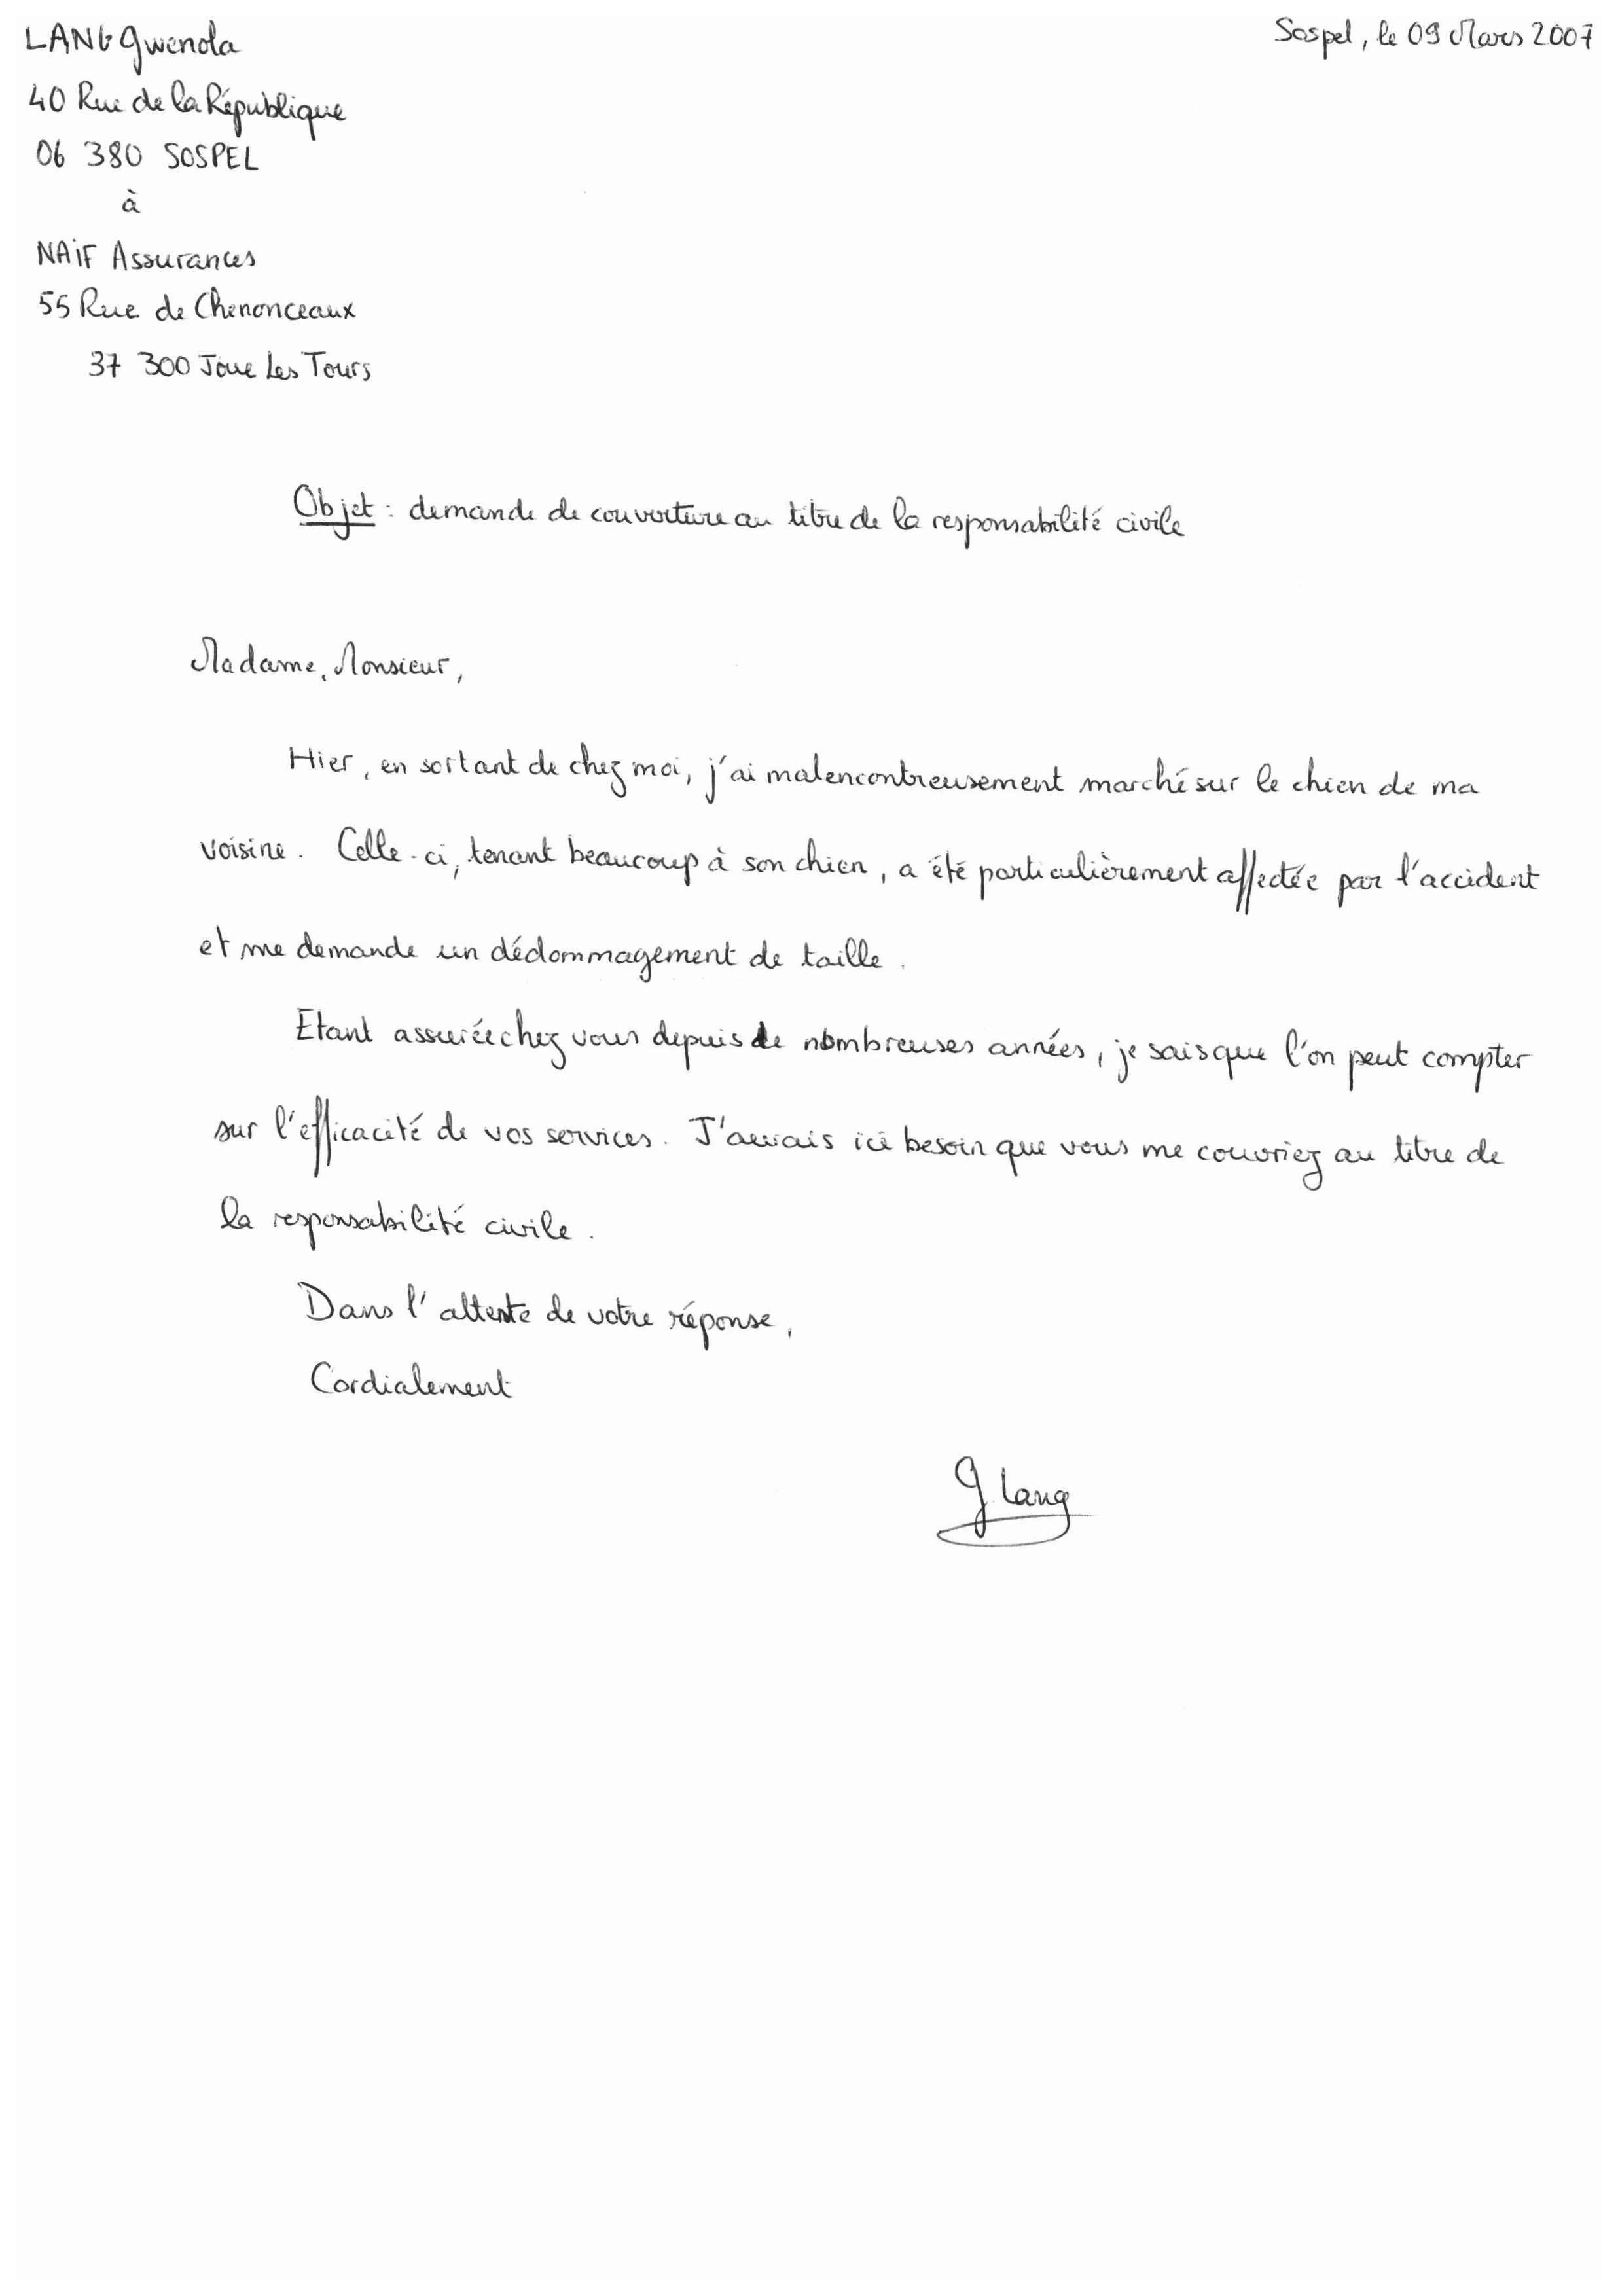 LANG Gwenola
Sospel, le 09 Mars 2007
40 Rue de la République
06 380 SOSPEL
à
NAiF Assurances
55 Rue de Chenonceaux
37 300 Joue Les Tours
Objet : demande de couverture au titre de la responsabilité civile
Madame, Monsieur,
Hier, en sortant de chez moi, j'ai malencontreusement marché sur le chien de ma
voisine. Celle-ci, tenant beaucoup à son chien, a été particulièrement affectée par l'accident
et me demande un dédommagement de taille.
Etant assurée chez vous depuis de nombreuses années, je sais que l'on peut compter
sur l'efficacité de vos services. J'aurais ici besoin que vous me couvriez au titre de
la responsabilité civile.
Dans l'attente de votre réponse,
Cordialement
G Lang